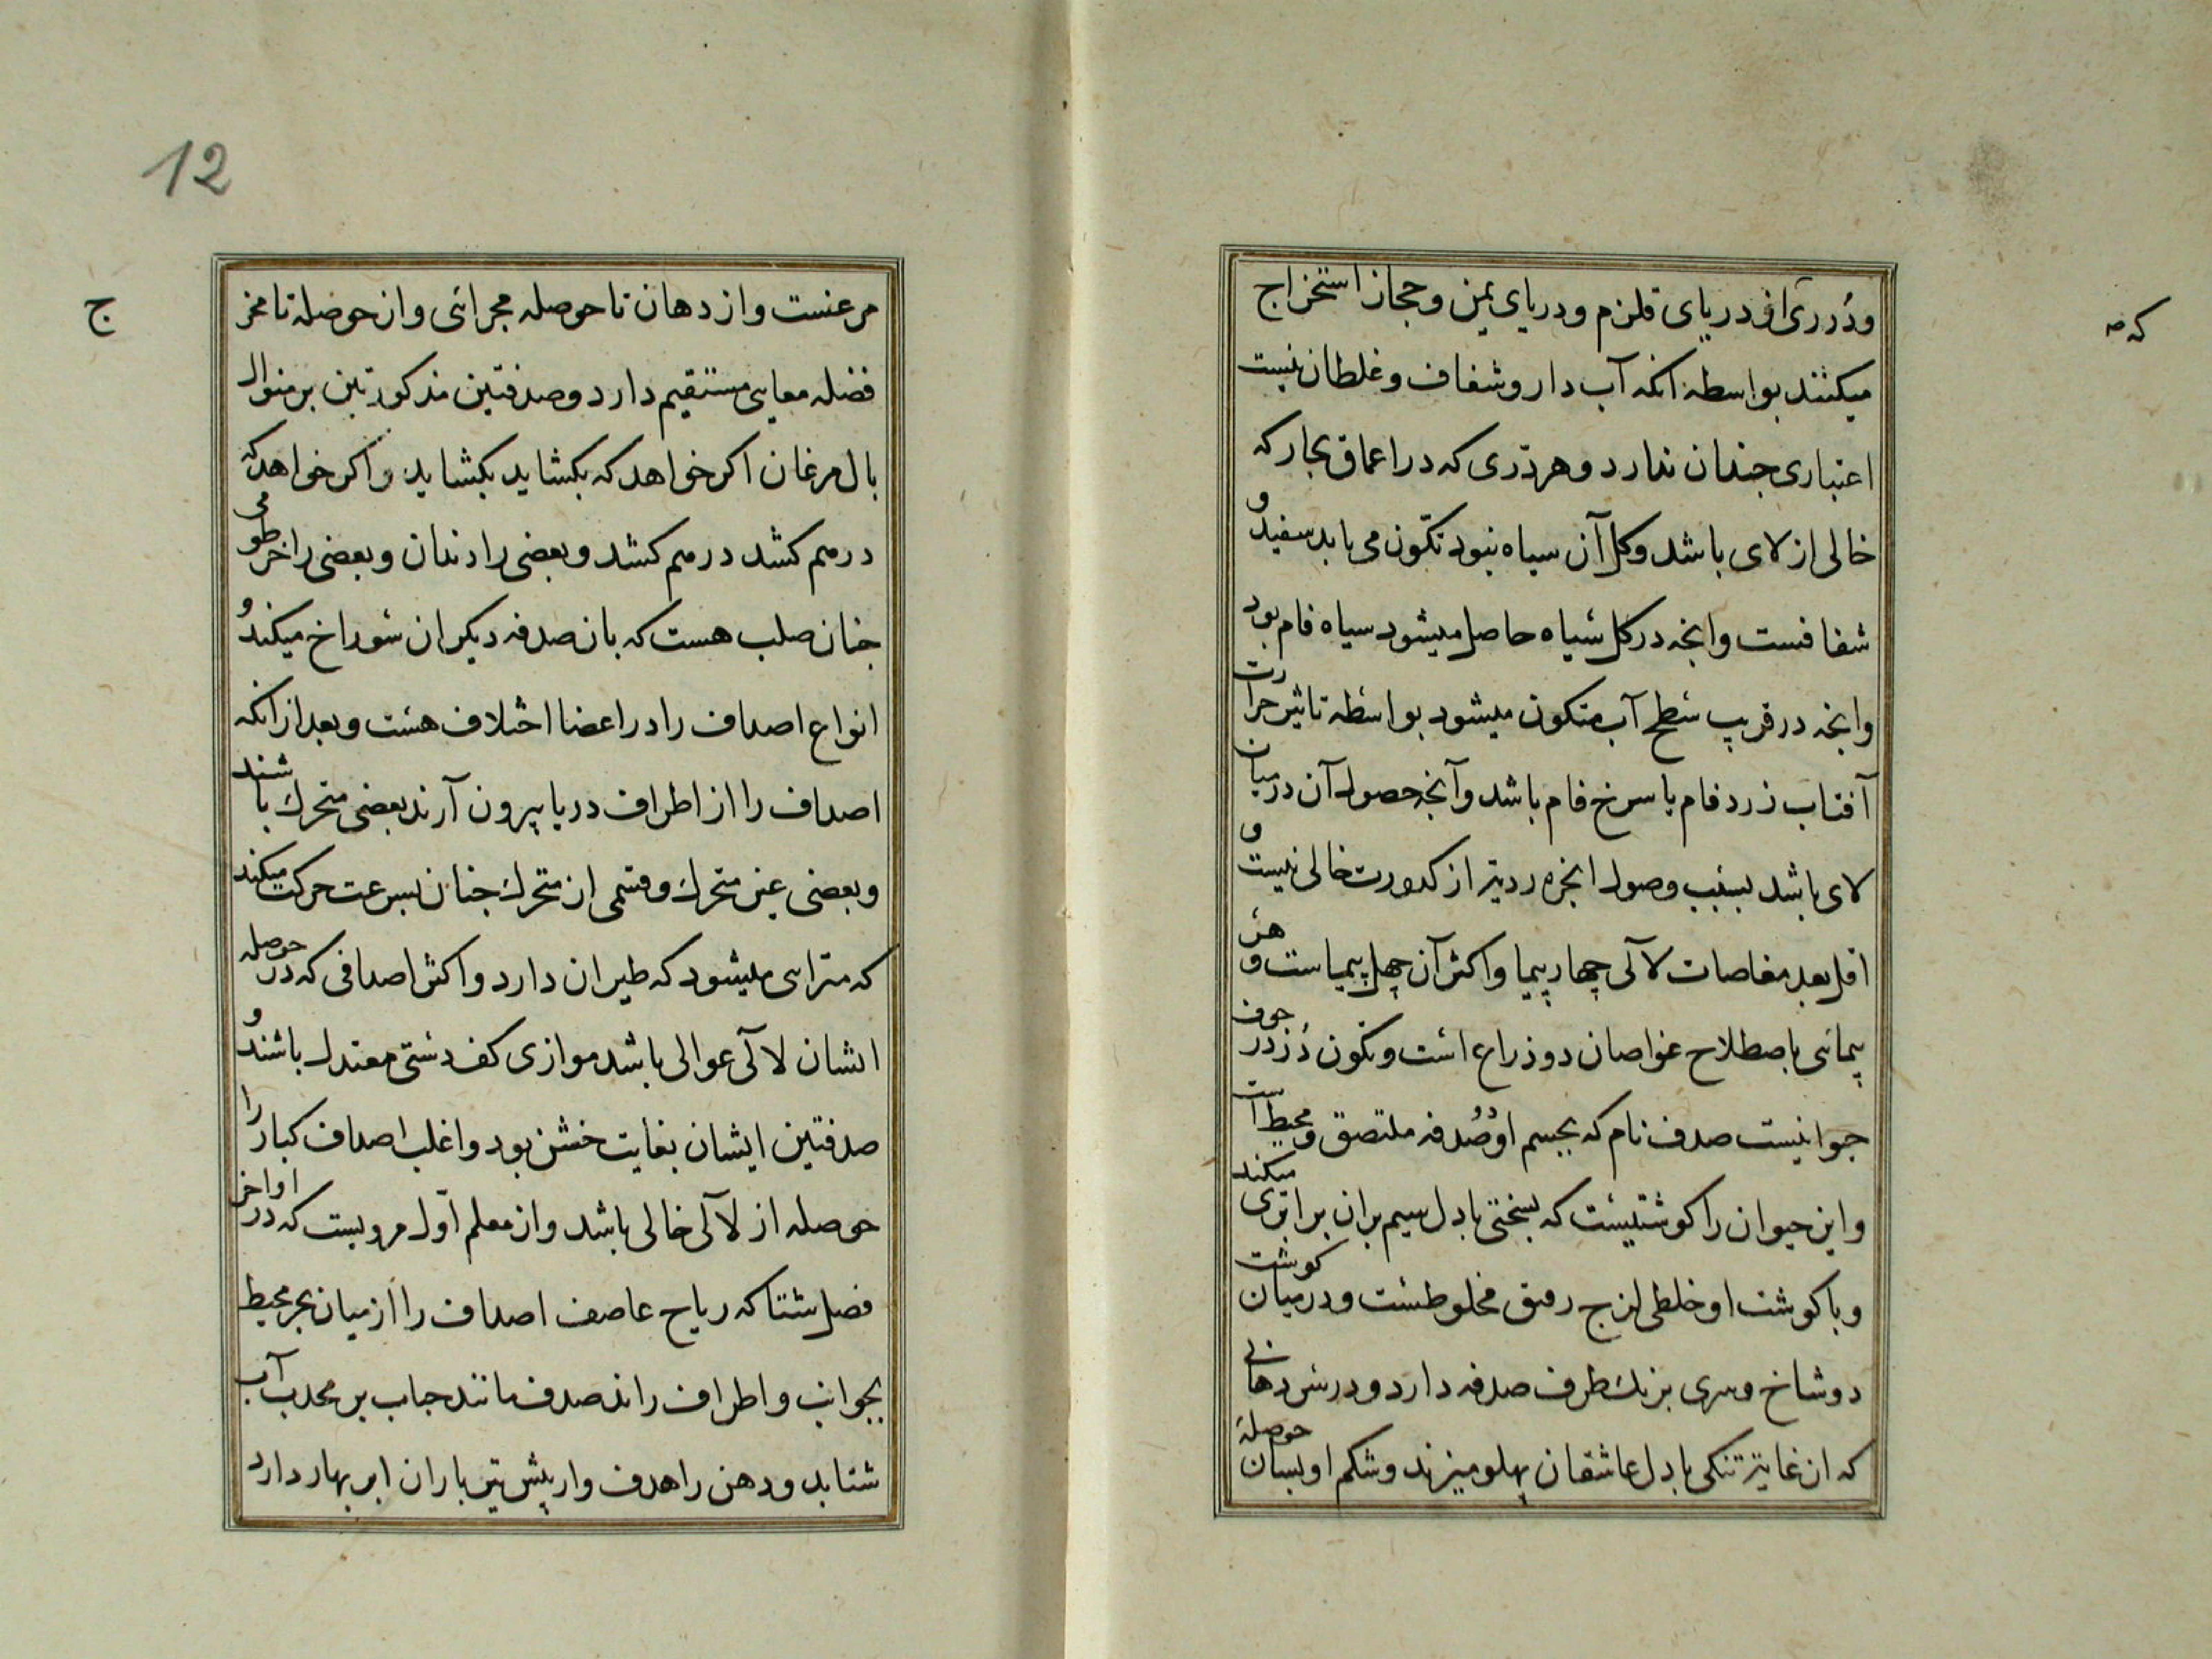 ودُرری از دریای قلزم ودریای یمن وحجاز استخراج
که صه
میکنند بواسطه انکه آب دار وشفاف وغلطان نیست
اعتباری جندان ندارد وهر دّری که در اعماق بحار که
خالی از لای باشد وکل آن سیاه نبود تکّون می یابد سفید و
شفافست وانجه در کل سیاه حاصل میشود سیاه فام بود
وانجه در قریب سطح آب متکون میشود بواسطه تاثیر حرارت
آفتاب زرد فام یا سرخ فام باشد وآنجه حصول آن درمیان
لای باشد بسبب وصول ابخره ردیه از کدورت خالی نیست و
اقل بعد مغاصات لآلی چهار پیما واکثر آن چهل پیماست و هر
پیمائی باصطلاح غواصان دو ذراع است وتکون دُر در جوف
حیوانیست صدف نام که بجسم او دو صدفه ملتصق ومحیط است
واین حیوان را کوشتیست که بسختی با دل سیم بران برابری میکند
وبا کوشت او خلطی لزج رقیق مخلوطست ودرمیان کوشت
دو شاخ وسری بزیک طرف صدفه دارد ودر سر دهانی
که از غایة تنکی با دل عاشقان پهلو میزند وشکم او بسان حوصلهٔ
12
ج
مرغست واز دهان تا حوصله مجرائی واز حوصله تا مخر
فضله معایی مستقیم دارد وصدفتین مذکورتین بر منوال
بال مرغان اکر خواهد که بکشاید بکشاید واکر خواهد که
درهم کشد درهم کشد وبعضی را دندان وبعضی را خرطومی
جنان صلب هست که بان صدفه دیکران سوراخ میکند و
انواع اصداف را در اعضا اختلاف هست وبعد از انکه
اصداف را از اطراف دریا بیرون آرند بعضی متحرك باشند
وبعضی غیر متحرك وقسمی از متحرك جنان بسرعت حرکت میکند
که مترای میشود که طیران دارد واکثر اصدافی که در حوصله
ایشان لآلی عوالی باشد موازی کف دستی معتدل باشند و
صدفتین ایشان بغایت خشن بود واغلب اصداف کبار را
حوصله از لآلی خالی باشد واز معلم اوّل مرویست که در اواخر
فصل شتا که ریاح عاصف اصداف را از میان بحر محیط
بجوانب واطراف راند صدف مانند حباب بر محدب آب
شتابد ودهن را هدف وار پیش تیر باران ابر بهار دارد